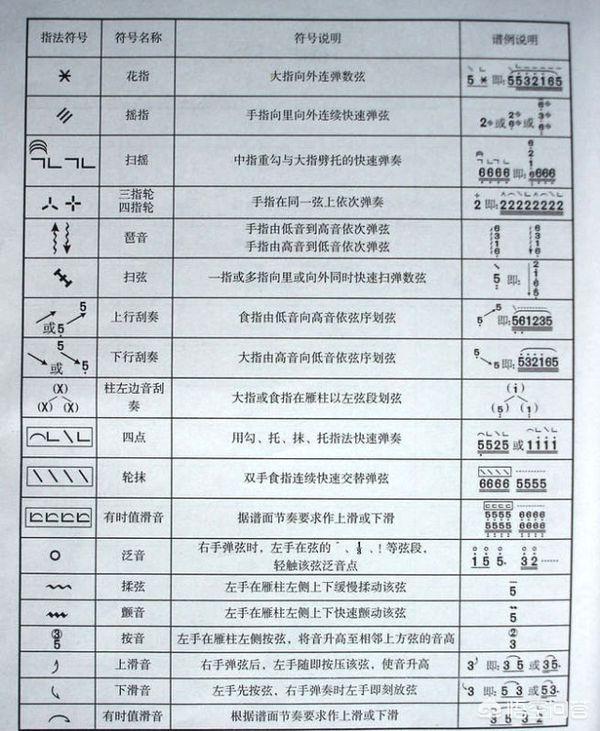 指法符号 符号名称 符号说明 谱例说明
花指 大指向外连弹数弦 5 即: 5532165
摇指 手指向里向外连续快速弹弦 2 或 或
扫摇 中指重勾与大指劈托的快速弹奏 6666 即: 6666
三指轮
四指轮 手指在同一弦上依次弹奏 2 即: 22222222
琶音 手指由低音到高音依次弹弦
手指由高音到低音依次弹弦
扫弦 一指或多指向里或向外同时快速扫弹数弦 5 即:
或5 5 上行刮奏 食指由低音向高音依弦序划弦 5 5 即: 561235
5 或 5 下行刮奏 大指由高音向低音依弦序划弦 5 5 即: 532165
(X)
(X) (X) 柱左边音刮奏 大指或食指在雁柱以左弦段划弦 (i)
(5) (1)
四点 用勾、托、抹、托指法快速弹奏 5525 或 1111
轮抹 双手食指连续快速交替弹弦 6666 5555
有时值滑音 据谱面节奏要求作上滑或下滑 5555 6666
5555 6666
泛音 右手弹弦时，左手在弦的 等弦段，
轻触该弦泛音点 1 5 5 3 2
揉弦 左手在雁柱左侧上下缓慢揉动该弦 5
颤音 左手在雁柱左侧上下快速颤动该弦 5
③
5 按音 左手在雁柱左侧按弦，将音升高至相邻上方弦的音高 ②
3
上滑音 右手弹弦后，左手随即按压该弦，使音升高 3 即: 3 5 或 35
下滑音 左手先按弦，右手弹奏时左手即刻放弦 3 即: 5 3 或 53
有时值滑音 根据谱面节奏要求作上滑或下滑 3 5 3 2